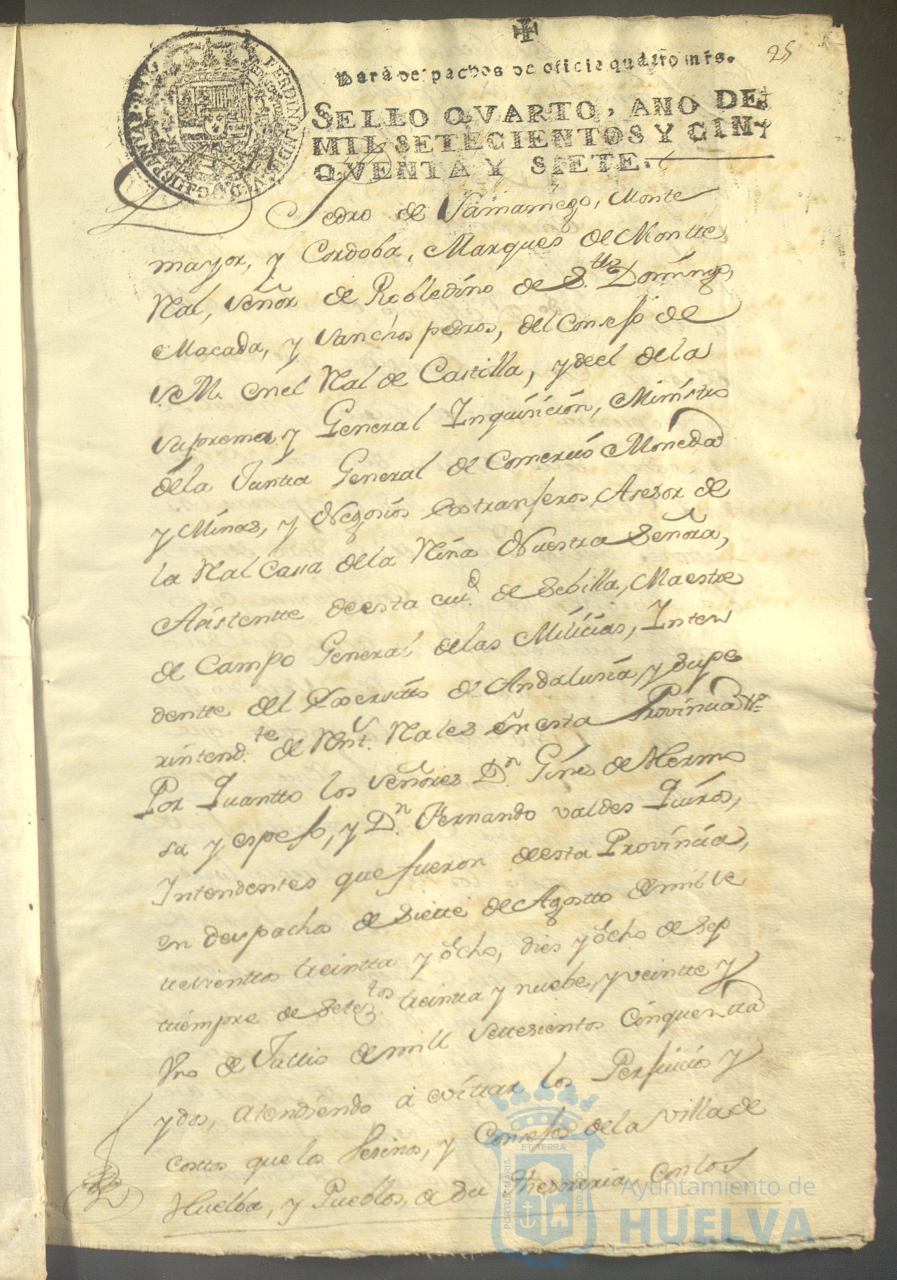 25
Para despachos de oficio quatro mrs.
SELLO QVARTO, AÑO DE
MIL SETECIENTOS Y CIN-
QVENTA Y SIETE.
Pedro de Samaniego, Monte
mayor, y Cordoba, Marques de Montte
Ral, señor de Robledino de Stto. Domingo,
Macada, y Sanchopedros, del Consejo de
S.M. enel Ral de Castilla, y deel dela
Suprema, y General Inquisicion, Ministro
dela Junta General de Comercio Moneda
y Minas, y Negosios Extranjeros, Asesor de
la Ral Casa dela Reina Nuestra Señora,
Asistentte deesta ciud. de Sebilla, Maestre
de Campo General delas Milicias, Inten
dentte del Exercitto de Andalusia, y Supe
rintendte. de Rentt. Rales en esta Provincia
Por Quantto los señores Dn Gines de Hermo
sa y espejo, y Dn. Fernando valdes Quiros,
Intendentes que fueron deesta Provincia,
en despachos de Siette de Agostto de mil se
tesientos treintta y ocho, dies y ocho de Sep
tiempre de Setestos. treinta y nuebe, y veintte y
de Jullio de mill settesientos Cinquentta
y dos, atendiendo à evittar los Perjuicios y
costtas que los Vesinos, y Consejos dela Villa de
Huelba, y Pueblos, de su thesoreria, con los
PORTUS MARIS
ET TERRAE
CUSTODIA
Ayuntamiento de
HUELVA